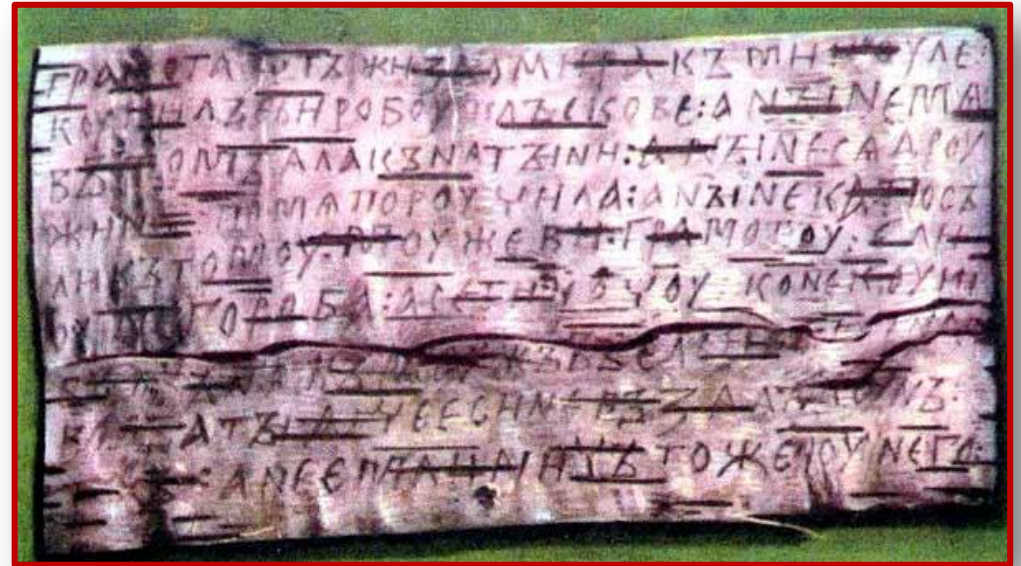 ГРАМОТА ОТЪ ЖИЗНОМИРА КЪ МИКОУЛЕ:
КОУПИЛЪ ЕСИ РОБОУ ПЛЪСКОВЕ: А НЪІНЕ МѦ
ВЪ ТОМЪ АЛА КЪНАГЪІНИ: А НЪІНЕ СѦ ДРОУ
ЖИНА ПО МѦ ПОРОУЧИЛА: А НЪІНЕ КА ПОСЪ
ЛИ КЪ ТОМОУ МОУЖЕВИ: ГРАМОТОУ: ЕЛИ
ОУ НЕГО РОБА: А СЕ ТИ ХОЧОУ КОНЕ КОУПИ
МОУЖЪ ВЪСАДИ
А ТЪІ АТЧЕ ЕСИ НЕ ВЪЗАЛЪ КОУНЪ:
ТЕХЪ: А НЕ ЕМЛИ НИЧЪТО ЖЕ ОУ НЕГО: